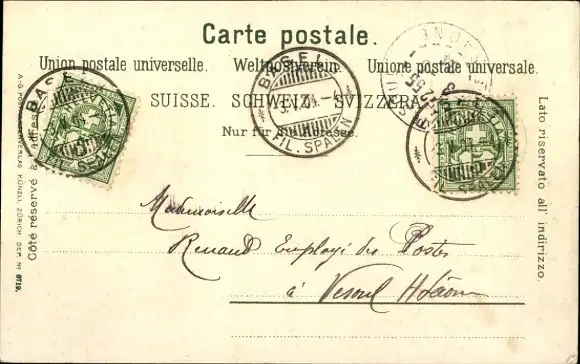 Carte postale.
Union postale universelle. Weltpostverein. Unione postale universale.
SUISSE. SCHWEIZ. SVIZZERA.
Nur für die Adresse.
Côté réservé à l'adresse.
Lato riservato all' indirizzo.
KÜNZLI, ZÜRICH DEP. No 6719.
BASEL
FIL. SPALEN
BASEL
FIL. SPALEN
BASEL
Mademoiselle
Renaud Employé des Postes
à Vesoul